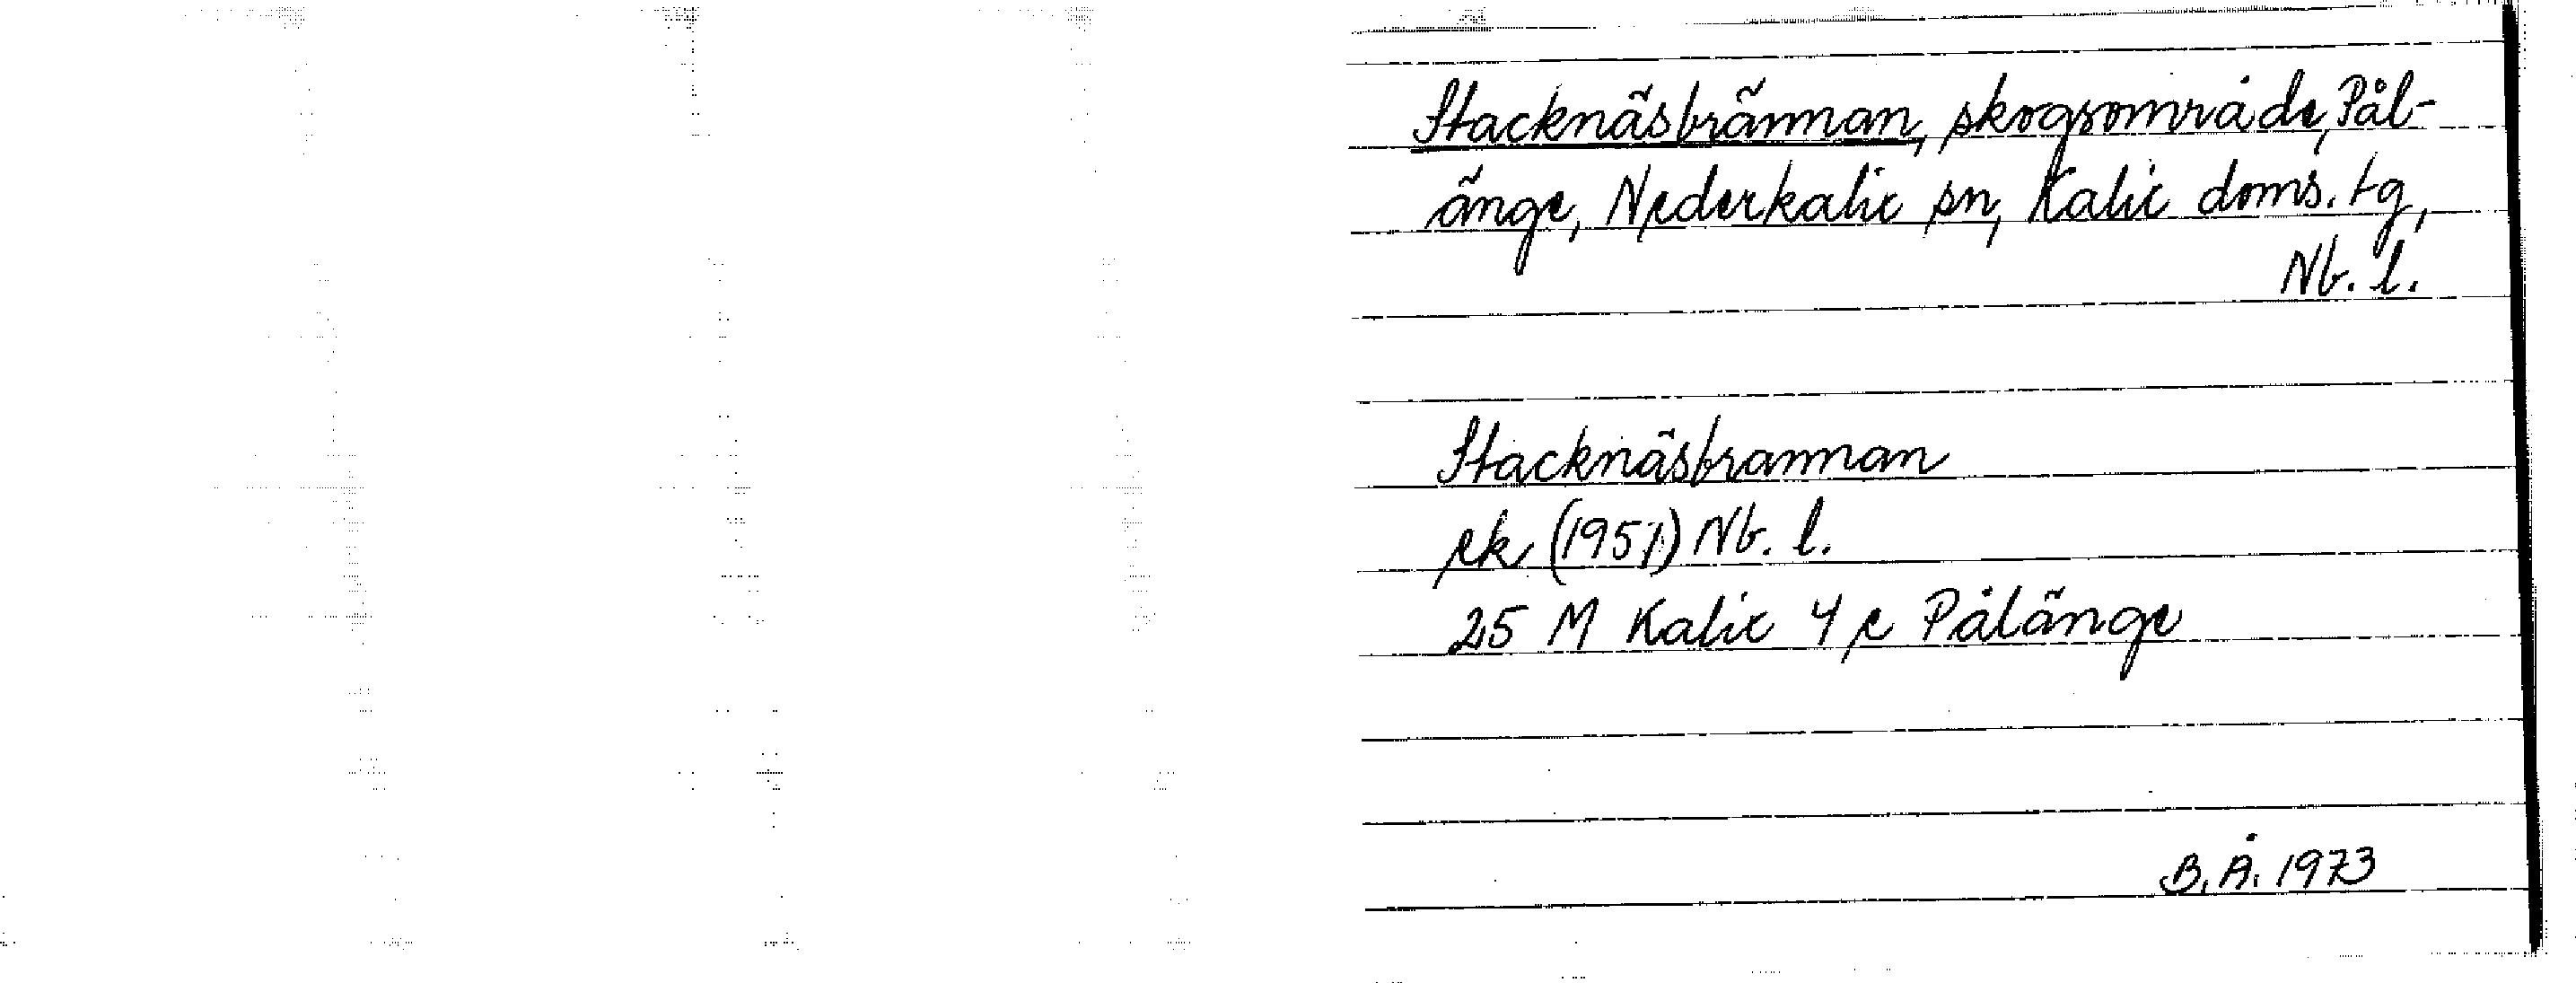 Stacknäsbrännan, skogsområde, Pål-
änge, Nederkalix sn, Kalix doms. tg,
Nb. l.
Stacknäsbrannan
ek (1951) Nb. l.
25 M Kalix 4 e Pålänge
B. Å. 1973